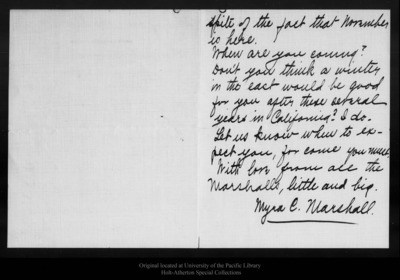 spite of the fact that November
is here.
When are you coming?
Don't you think a winter
in the east would be good
for you after these several
years in California? I do.
Let us know when to ex-
pect you, for come you must.
With love from all the
Marshalls, little and big.
Myra C. Marshall.
Original located at University of the Pacific Library
Holt-Atherton Special Collections